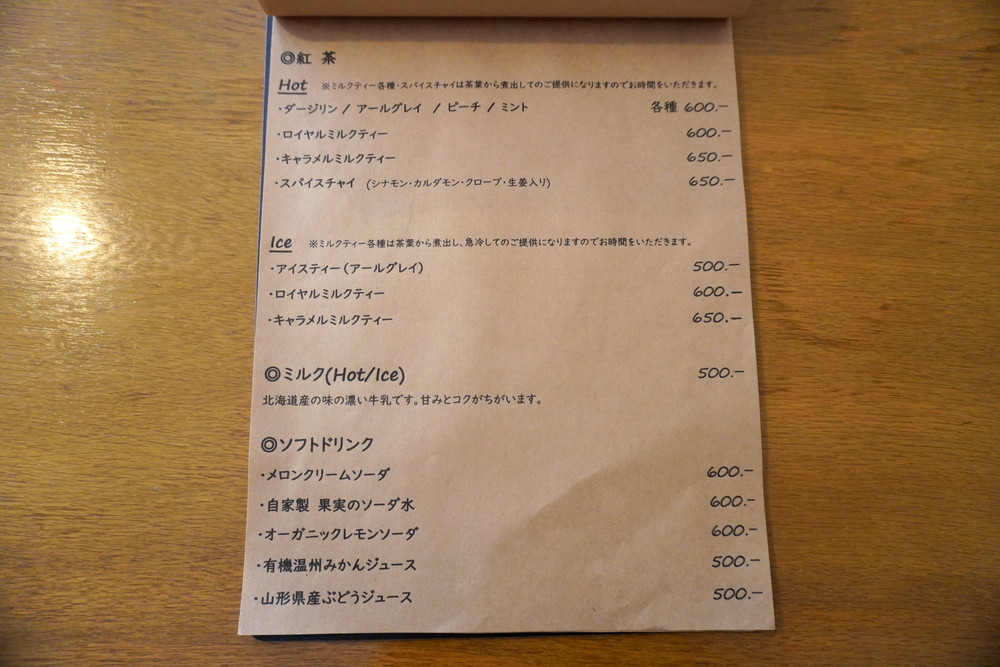 ◎紅 茶
Hot ※ミルクティー各種・スパイスチャイは茶葉から煮出してのご提供になりますのでお時間をいただきます。
・ダージリン / アールグレイ / ピーチ / ミント 各種 600.-
・ロイヤルミルクティー 600.-
・キャラメルミルクティー 650.-
・スパイスチャイ (シナモン・カルダモン・クローブ・生姜入り) 650.-
Ice ※ミルクティー各種は茶葉から煮出し、急冷してのご提供になりますのでお時間をいただきます。
・アイスティー(アールグレイ) 500.-
・ロイヤルミルクティー 600.-
・キャラメルミルクティー 650.-
◎ミルク(Hot/Ice) 500.-
北海道産の味の濃い牛乳です。甘みとコクがちがいます。
◎ソフトドリンク
・メロンクリームソーダ 600.-
・自家製 果実のソーダ水 600.-
・オーガニックレモンソーダ 600.-
・有機温州みかんジュース 500.-
・山形県産ぶどうジュース 500.-